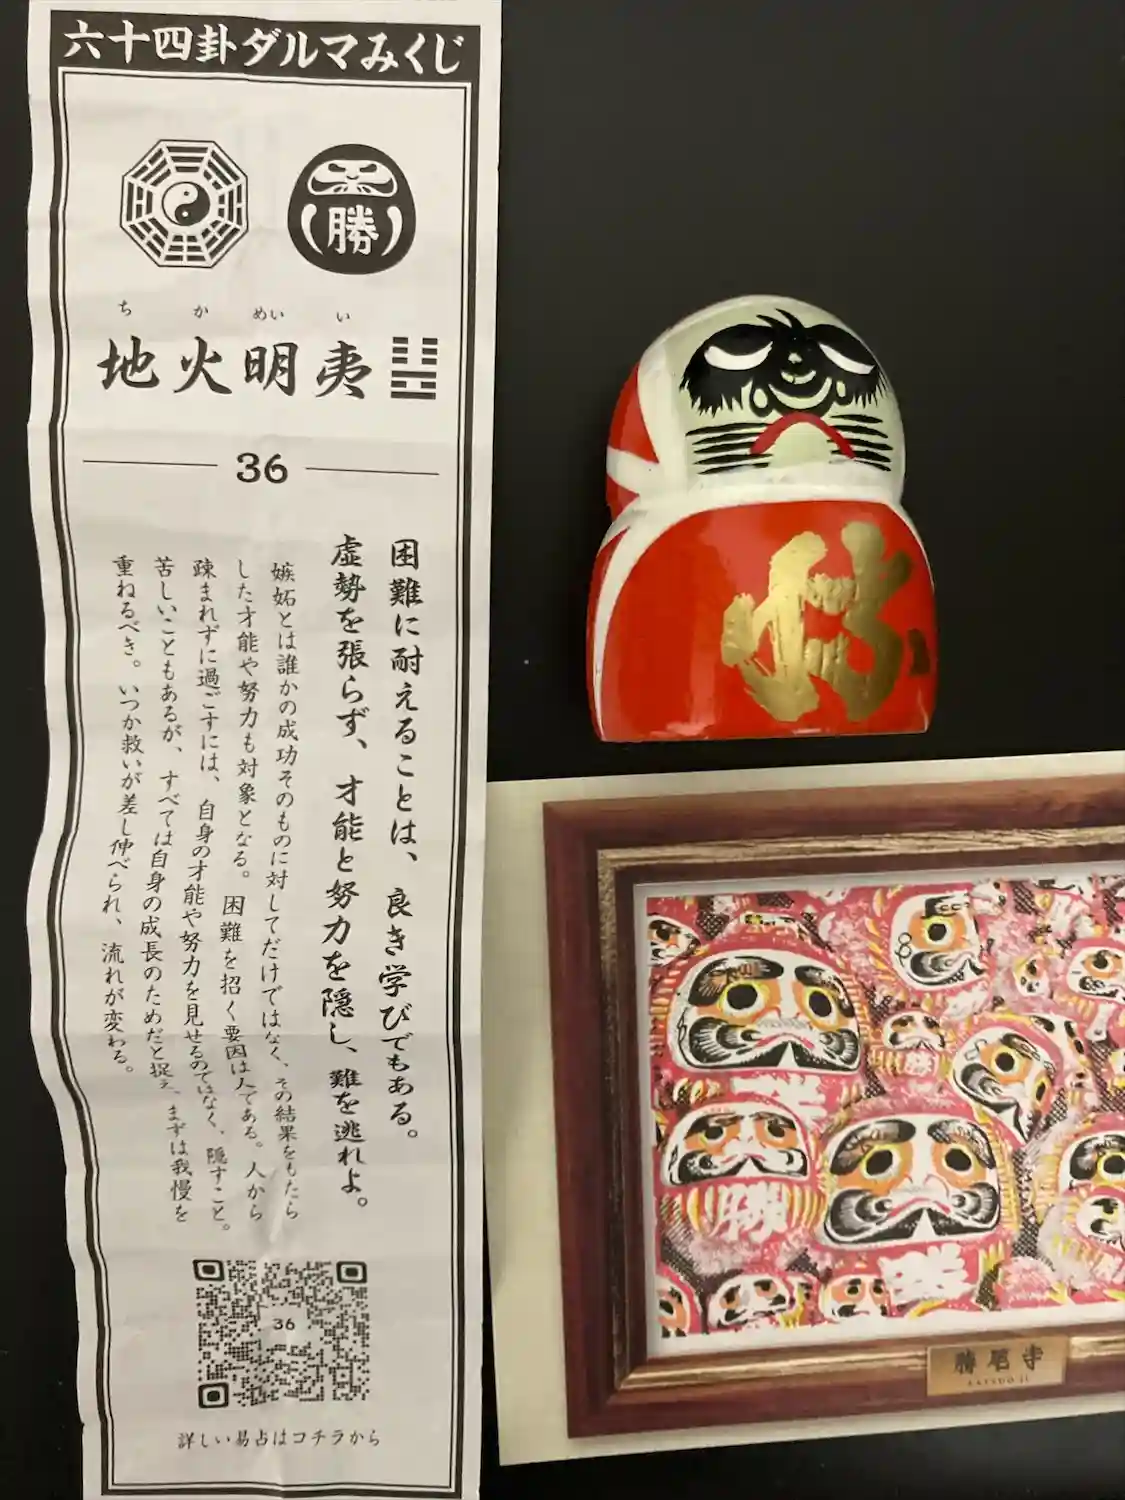 六十四卦ダルマみくじ
勝
ち か めい い
地火明夷
36
困難に耐えることは、良き学びでもある。
虚勢を張らず、才能と努力を隠し、難を逃れよ。
嫉妬とは誰かの成功そのものに対してだけではなく、その結果をもたら
した才能や努力も対象となる。困難を招く要因は人である。人から
疎まれずに過ごすには、自身の才能や努力を見せるのではなく、隠すこと。
苦しいこともあるが、すべては自身の成長のためだと捉え、まずは我慢を
重ねるべき。いつか救いが差し伸べられ、流れが変わる。
36
詳しい易占はコチラから
勝
勝
勝
勝
勝尾寺
KATSUO-JI